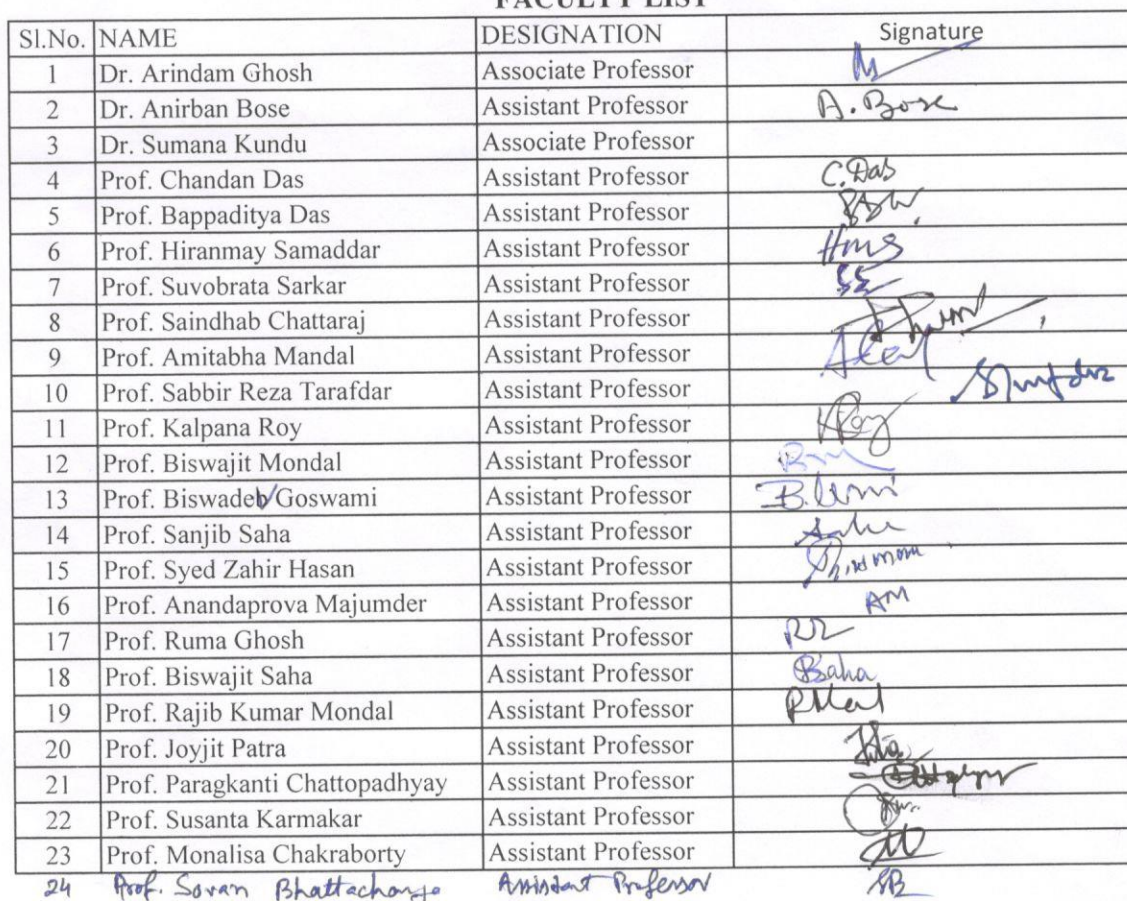 FACULTY LIST
Sl.No. NAME DESIGNATION Signature
1 Dr. Arindam Ghosh Associate Professor
2 Dr. Anirban Bose Assistant Professor A. Bose
3 Dr. Sumana Kundu Associate Professor
4 Prof. Chandan Das Assistant Professor C. Das
5 Prof. Bappaditya Das Assistant Professor
6 Prof. Hiranmay Samaddar Assistant Professor HMS
7 Prof. Suvobrata Sarkar Assistant Professor SS
8 Prof. Saindhab Chattaraj Assistant Professor
9 Prof. Amitabha Mandal Assistant Professor
10 Prof. Sabbir Reza Tarafdar Assistant Professor
11 Prof. Kalpana Roy Assistant Professor KRoy
12 Prof. Biswajit Mondal Assistant Professor
13 Prof. Biswadeb Goswami Assistant Professor
14 Prof. Sanjib Saha Assistant Professor
15 Prof. Syed Zahir Hasan Assistant Professor
16 Prof. Anandaprova Majumder Assistant Professor AM
17 Prof. Ruma Ghosh Assistant Professor
18 Prof. Biswajit Saha Assistant Professor BSaha
19 Prof. Rajib Kumar Mondal Assistant Professor
20 Prof. Joyjit Patra Assistant Professor
21 Prof. Paragkanti Chattopadhyay Assistant Professor
22 Prof. Susanta Karmakar Assistant Professor
23 Prof. Monalisa Chakraborty Assistant Professor
24 Prof. Sovan Bhattacharya Assistant Professor SB